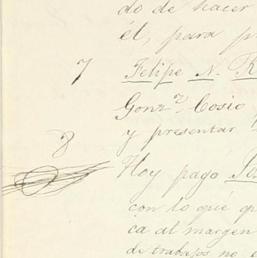 do de hacer
él, para p
7 Felipe N. R
Gonz.z Cosio
y presentar
8
Hoy pagó Jos
con lo qué qu
ca al margen
de trabajos no e